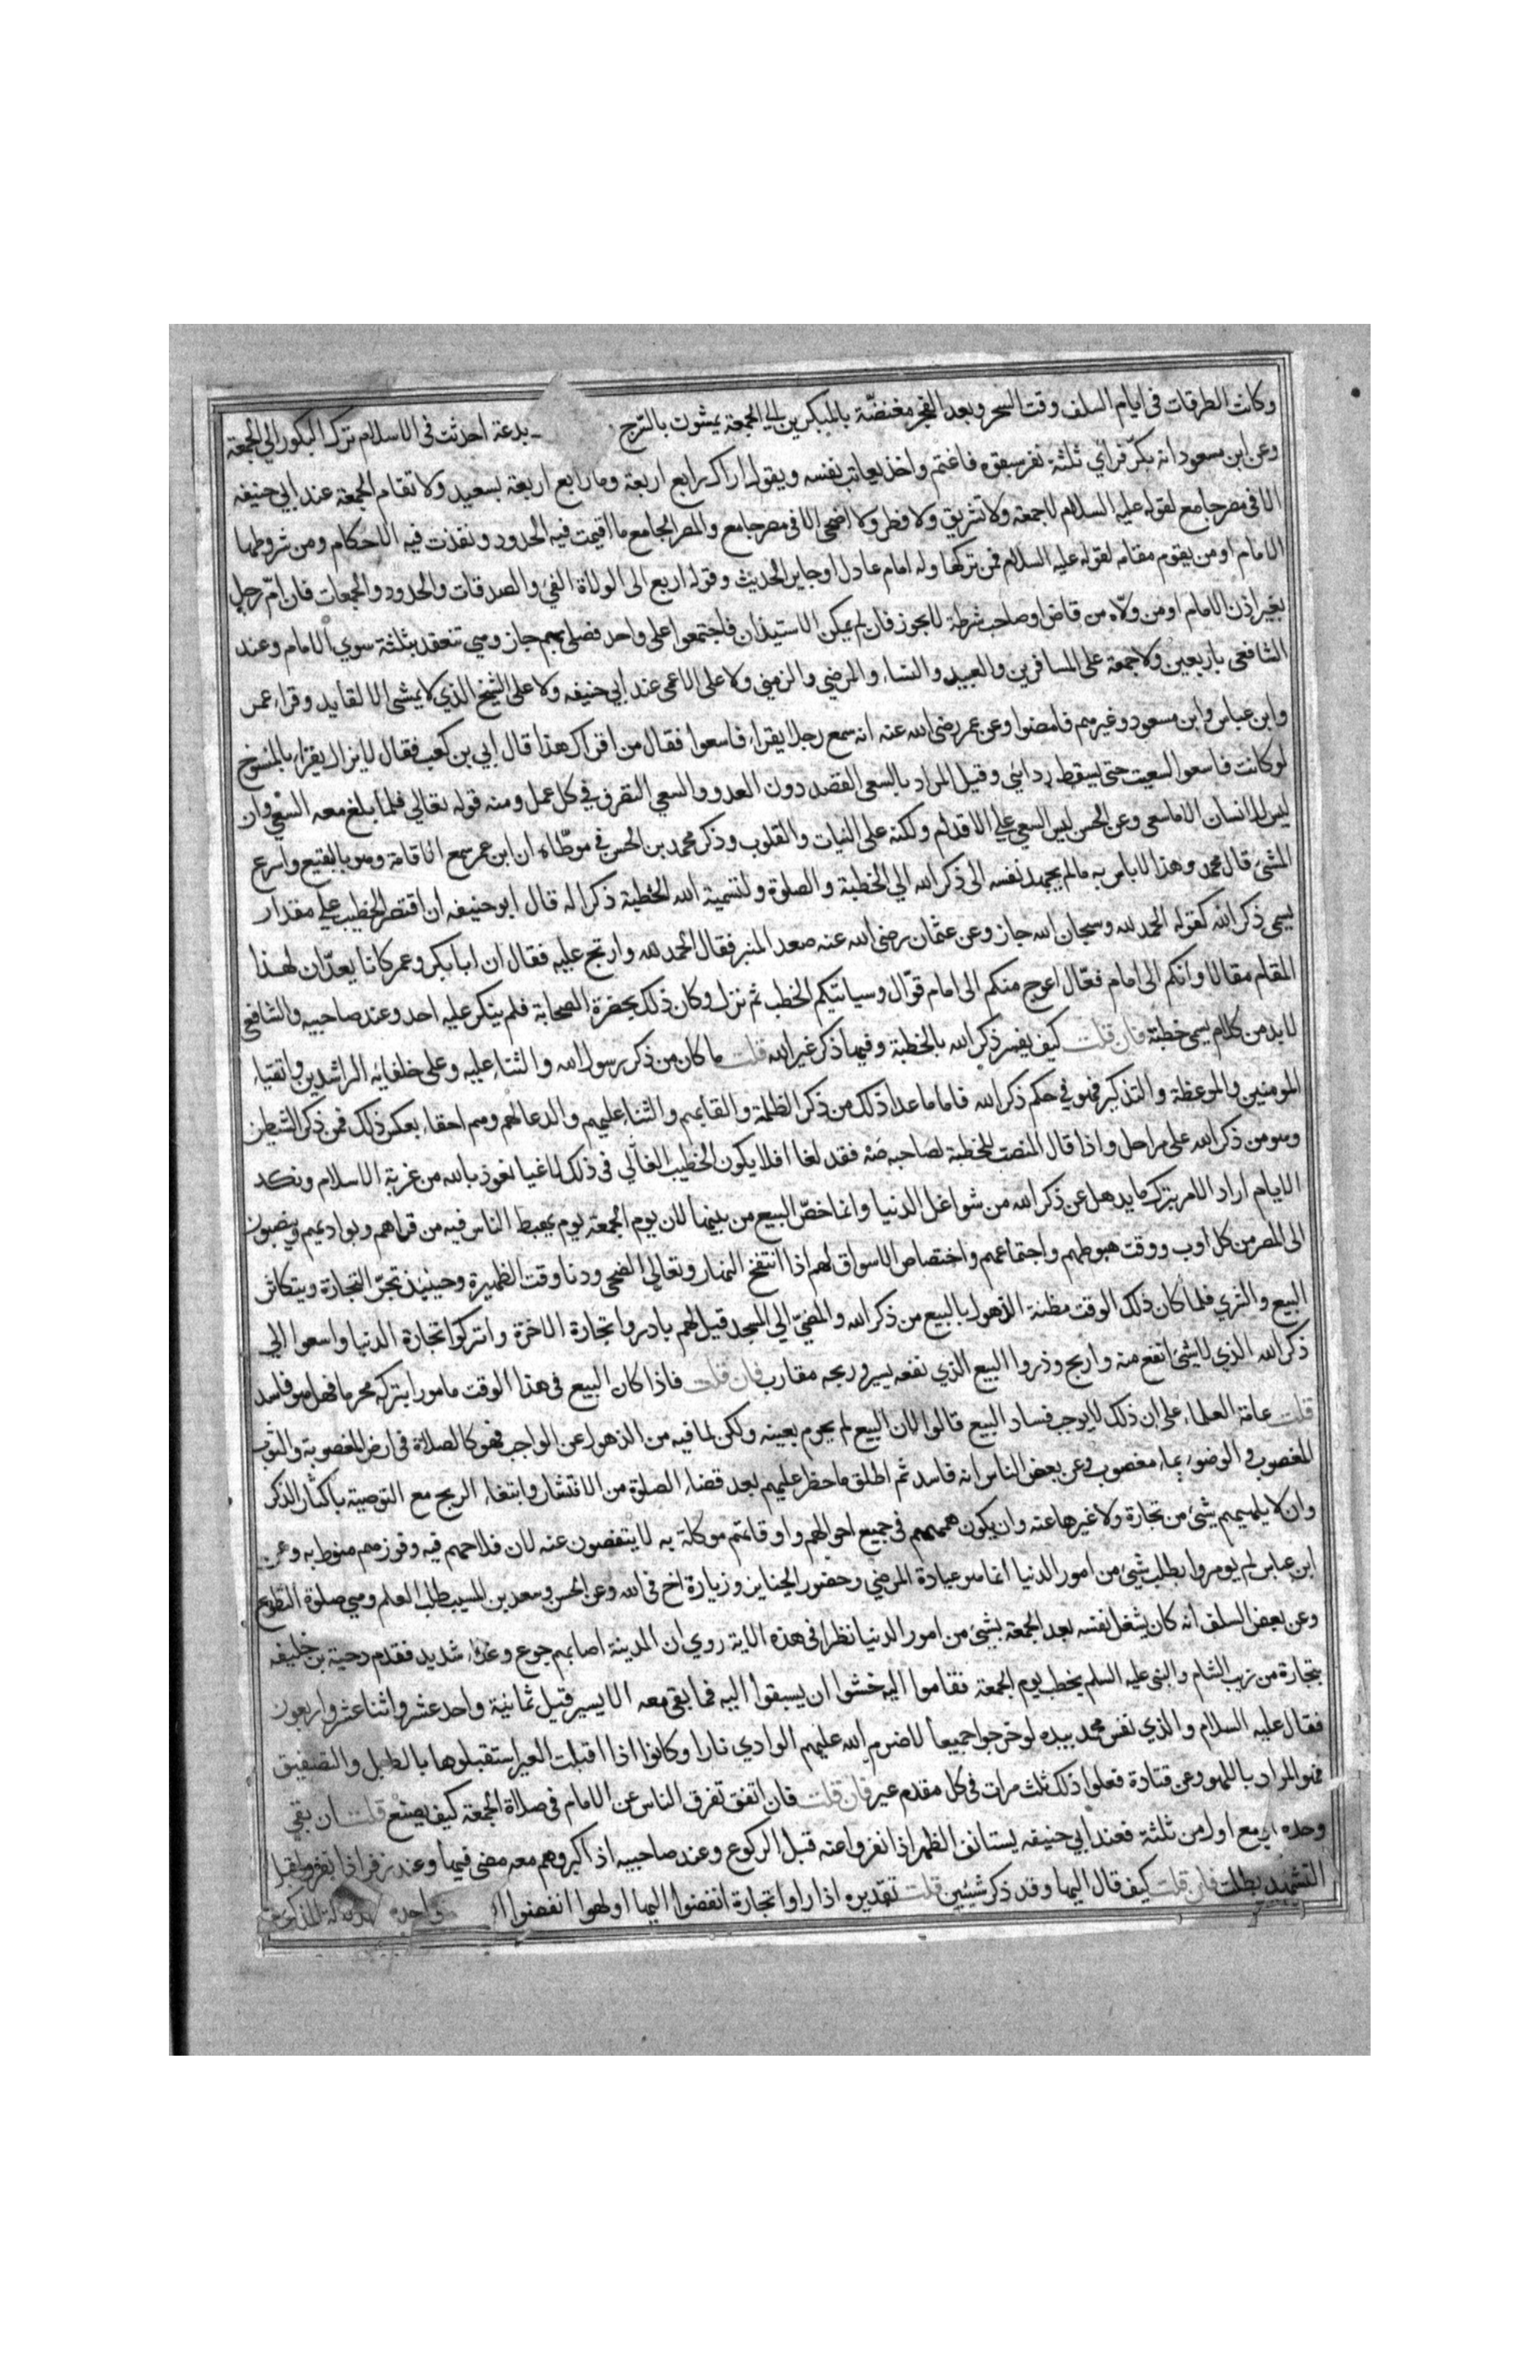 وكانت الطرقات فى ايام السلف وقت السحر وبعد الفجر مغتصّة بالمبكرين الي الجمعة يمشون بالسّرج بدعة احدثت فى الاسلام ترك البكور الي الجمعة
وعن ابن مسعود انه بكّر فراي ثلثة نفر سبقوه فاغتم واخذ يعاتب نفسه ويقول اراك رابع اربعة وما رابع اربعة بسعيد ولا تقام الجمعة عند ابي حنيفه
الا فى مصر جامع لقوله عليه السلام لا جمعة ولا تشريق ولا فطر ولا اضحى الا فى مصر جامع والمصر الجامع ما اقيمت فيه الحدود ونفذت فيه الاحكام ومن شروطها
الامام او من يقوم مقامه لقوله عليه السلام فمن تركها وله امام عادل او جاير الحديث وقوله اربع الى الولاة الفئ والصدقات والحدود والجمعات فان امّ رجل
بغير اذن الامام او من ولّاه من قاض او صاحب شرطة لا يجوز فان لم يمكن الاستيذان فاجتمعوا على واحد فصلى بهم جاز ومي تنعقد بثلثة سوي الامام وعند
الشافعى باربعين ولا جمعة على المسافرين والعبيد والنساء والمرضي والزمني ولا على الاعمى عند ابي حنيفه ولا على الشيخ الذي لا يمشى الا لقايد وقراء عمر
وابن عباس وابن مسعود وغيرهم فامضوا وعن عمر رضى الله عنه انه سمع رجلا يقراء فاسعوا فقال من اقراك هذا قال ابي بن كعب فقال لا يزال يقراء بالمنسوخ
لو كانت فاسعوا لسعيت حتى يسقط ردائي وقيل المراد بالسعى القصد دون العدو والسعي التصرف في كل عمل ومنه قوله تعالي فلما بلغ معه السعي وان
ليس للانسان الا ما سعى وعن الحسن ليس السعي على الاقدام ولكنه على النيات والقلوب وذكر محمد بن الحسن في موطّاه ان ابن عمر سمع الاقامة وهو بالبقيع واسرع
المشي قال محمد وهذا لا باس به مالم يجهد نفسه الى ذكر الله الي الخطبة والصلوة ولتسمية الله الخطبة ذكرا له قال ابو حنيفه ان اقتصر الخطيب على مقدار
يسمى ذكر الله كقوله الحمد لله وسبحان الله جاز وعن عثمان رضى الله عنه صعد المنبر فقال الحمد لله وارتج عليه فقال ان ابا بكر وعمر كانا يعدّان لهذا
المقام مقالا وانكم الى امام فعّال احوج منكم الى امام قوّال وسياتيكم الخطب ثم نزل وكان ذلك بحضرة الصحابة فلم ينكر عليه احد وعند صاحبيه والشافعي
لا بد من كلام يسمى خطبة فان قلت كيف يفسر ذكر الله بالخطبة وفيها ذكر غير الله قلت ما كان من ذكر رسول الله والثناء عليه وعلى خلفايه الراشدين واتقياء
المومنين والموعظة والتذكير فهو في حكم ذكر الله فاما ما عدا ذلك من ذكر الظلمة والقابهم والثناء عليهم والدعا لهم وهم احقاء بعكس ذلك فمن ذكر الشيطن
وهو من ذكر الله على مراحل واذا قال المنصت للخطبة لصاحبه صَهْ فقد لغا افلا يكون الخطيب الغالي فى ذلك لاغيا نعوذ بالله من غربة الاسلام ونكد
الايام اراد الامر بترك ما يدهل عن ذكر الله من شواغل الدنيا وانما خصّ البيع من بينها لان يوم الجمعة يوم يهبط الناس فيه من قراهم وبواديهم وينصبون
الى المصر من كل اوب ووقت هبوطهم واجتماعهم واختصاص الاسواق لهم اذا انتفخ النهار وتعالي الضحى ودنا وقت الظهيرة وحينيذ تجر التجارة ويتكاثر
البيع والشري فلما كان ذلك الوقت مظنة الذهول بالبيع من ذكر الله والمضي الي المسجد قيل لهم بادروا تجارة الاخرة واتركوا تجارة الدنيا واسعوا الي
ذكر الله الذي لا شئ انفع منه واربح وذروا البيع الذي نفعه يسير وربحه مقارب فان قلت فاذا كان البيع فى هذا الوقت مامورا بتركه محرما فهل هو فاسد
قلت عامة العلماء على ان ذلك لا يوجب فساد البيع قالوا لان البيع لم يحرم بعينه ولكن لما فيه من الذهول عن الواجب فهو كالصلاة فى ارض المغصوبة والثوب
المغصوب والوضوء بماء مغصوب وعن بعض الناس انه فاسد ثم اطلق ما حظر عليهم بعد قضاء الصلوة من الانتشار وابتغاء الربح مع التوصية باكثار الذكر
وان لا يلهيهم شئ من تجارة ولا غيرها عنه وان يكون هممهم فى جميع احوالهم واوقاتهم موكلة به لا يتفصون عنه لان فلاحهم فيه وفوزهم منوط به وعن
ابن عباس لم يومروا بطلب شئ من امور الدنيا انما هو عيادة المرضي وحضور الجنايز وزيارة اخ فى الله وعن الحسن وسعد بن المسيب طلب العلم ومي صلوة التطوع
وعن بعض السلف انه كان يشغل نفسه بعد الجمعة بشئ من امور الدنيا نظرا فى هذه الاية روي ان المدينة اصابهم جوع وغلاء شديد فقدم دحية بن خليفه
بتجارة من زيت الشام والنبى عليه السلم يخطب يوم الجمعة فقاموا اليه خشوا ان يسبقوا اليه فما بقى معه الا يسير قيل ثمانية واحد عشر واثنا عشر واربعون
فقال عليه السلام والذي نفس محمد بيده لو خرجوا جميعا لاضرم الله عليهم الوادي نارا وكانوا اذا اقبلت العير استقبلوها بالطبل والتصفيق
فهو المراد باللهو وعن قتادة فعلوا ذلك ثلث مرات فى كل مقدم عير فان قلت فان اتفق تفرق الناس عن الامام فى صلاة الجمعة كيف يصنع قلت ان بقي
وحده او مع اول من ثلثة فعند ابي حنيفه يستانف الظهر اذا نفروا عنه قبل الركوع وعند صاحبيه اذا كبر وهم معه مضى فيها وعند زفر اذا نفروا قبل
التشهد بطلت فان قلت كيف قال اليها وقد ذكر شيئين قلت تقديره اذا راوا تجارة انفضوا اليها او لهوا انفضوا واحده لدلالة المذكور